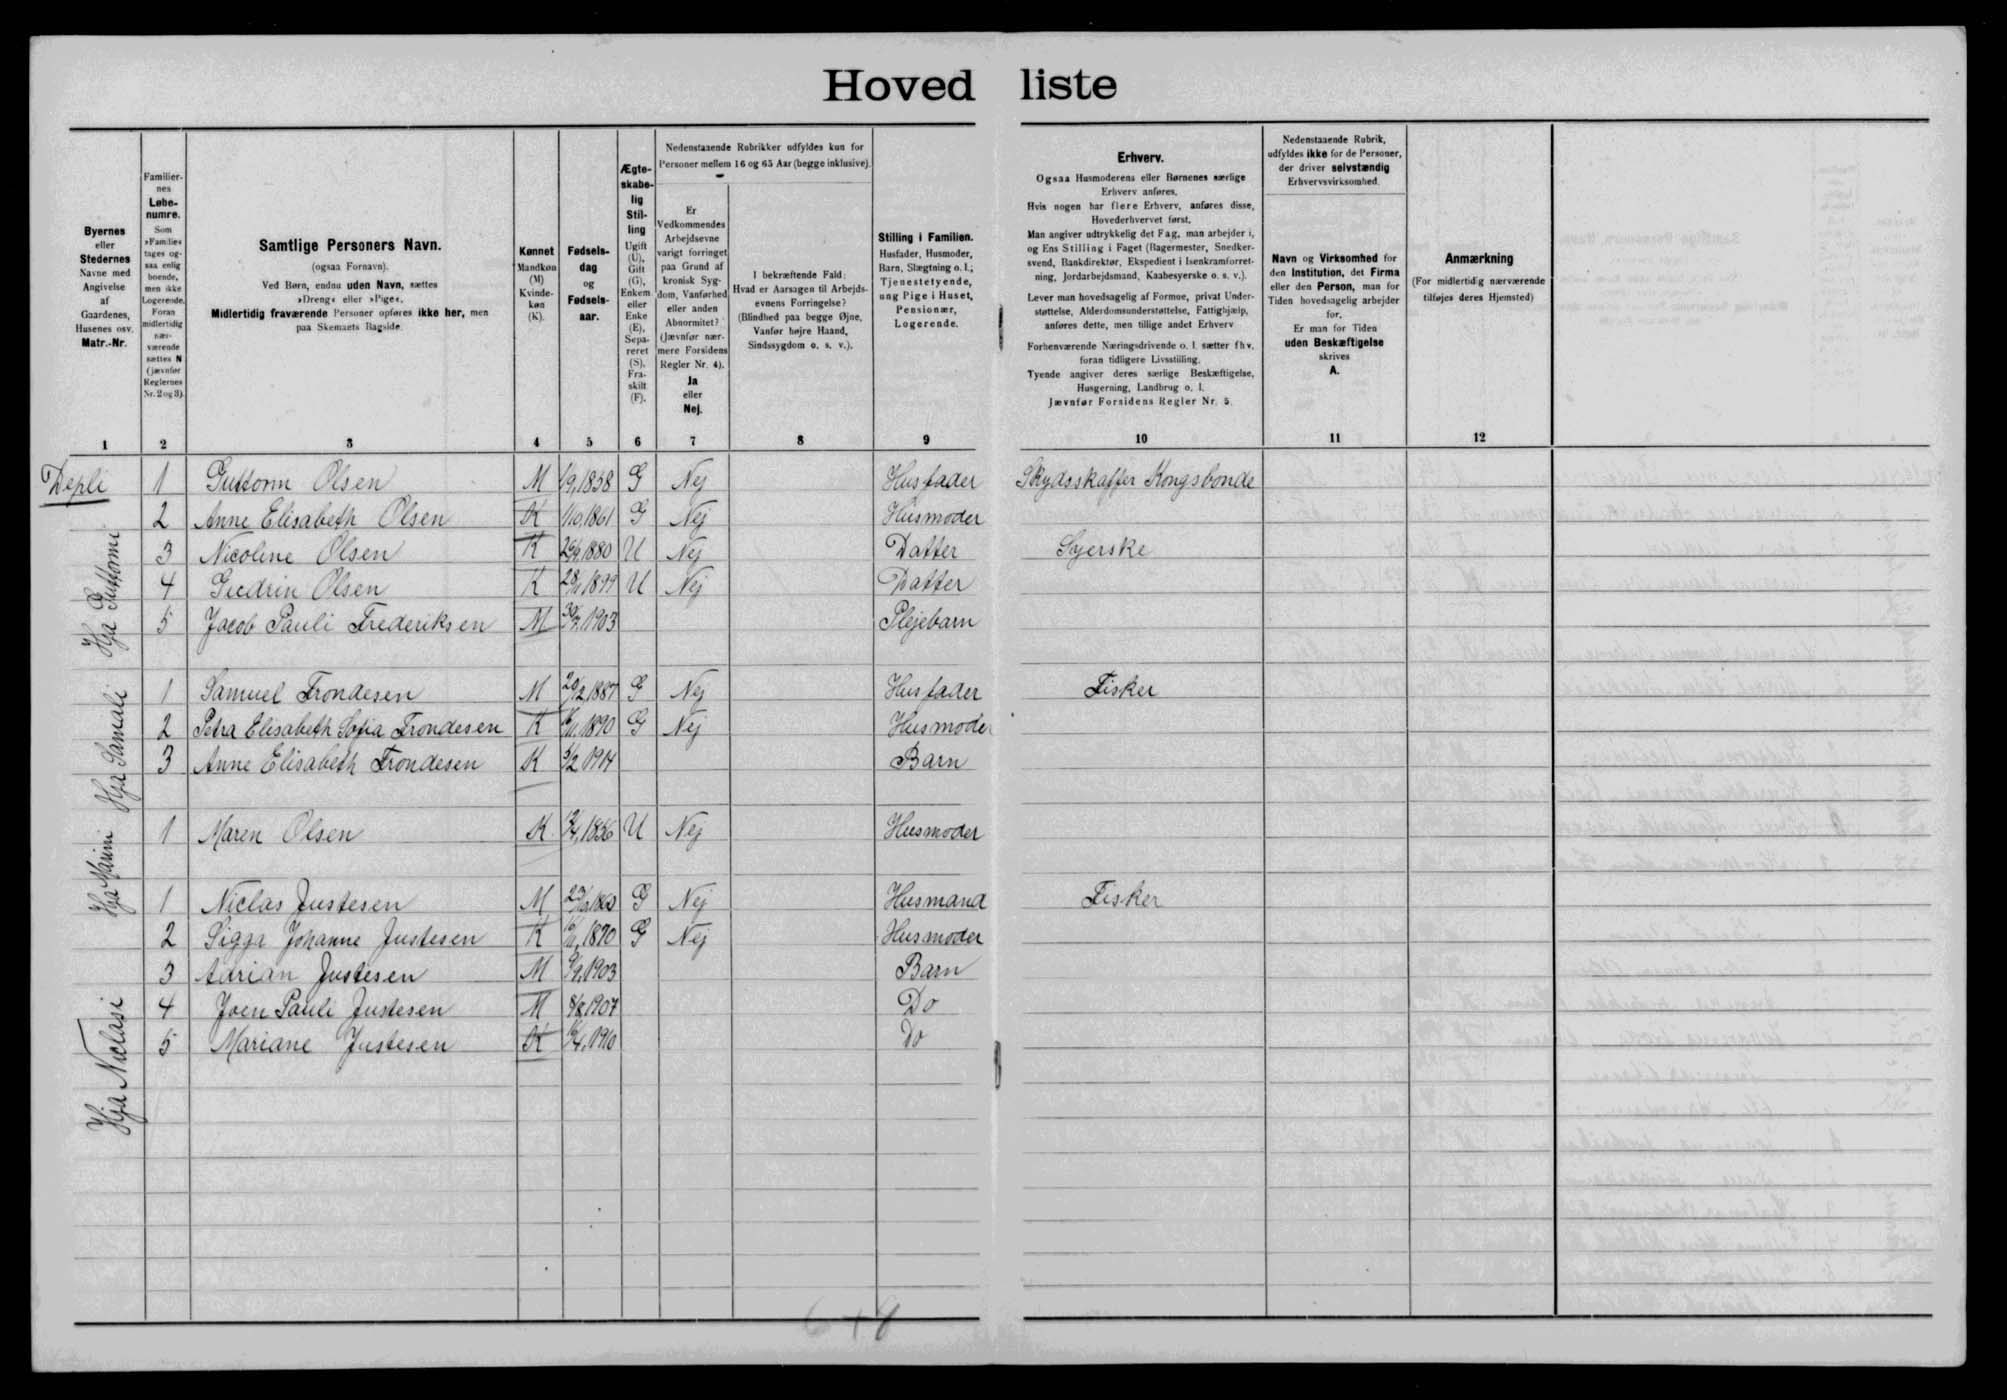 Hovedliste
Byernes
eller
Stedernes
Navne med
Angivelse
af
Gaardenes,
Husenes osv.
Matr.-Nr.
Familier-
nes
Løbe-
numre.
Som
»Familie«
tages og-
saa enlig
boende,
men ikke
Logerende.
Foran
midlertidig
nær-
værende
sættes N
(jævnfør
Reglernes
Nr. 2 og 3).
Samtlige Personers Navn.
(ogsaa Fornavn).
Ved Børn, endnu uden Navn, sættes
»Dreng« eller »Pige«.
Midlertidig fraværende Personer opføres ikke her, men
paa Skemaets Bagside.
Kønnet
Mandkøn
(M)
Kvinde-
køn
(K).
Fødsels-
dag
og
Fødsels-
aar.
Ægte-
skabe-
lig
Stil-
ling
Ugift
(U),
Gift
(G),
Enkem.
eller
Enke
(E),
Sepa-
reret
(S),
Fra-
skilt
(F).
Nedenstaaende Rubrikker udfyldes kun for
Personer mellem 16 og 65 Aar (begge inklusive).
Er
Vedkommendes
Arbejdsevne
varigt forringet
paa Grund af
kronisk Syg-
dom, Vanførhed
eller anden
Abnormitet?
(Jævnfør nær-
mere Forsidens
Regler Nr. 4).
Ja
eller
Nej.
I bekræftende Fald:
Hvad er Aarsagen til Arbejds-
evnens Forringelse?
(Blindhed paa begge Øjne,
Vanfør højre Haand,
Sindssygdom o. s. v.).
Stilling i Familien.
Husfader, Husmoder,
Barn, Slægtning o. l.;
Tjenestetyende,
ung Pige i Huset,
Pensionær,
Logerende.
Erhverv.
Ogsaa Husmoderens eller Børnenes særlige
Erhverv anføres.
Hvis nogen har flere Erhverv, anføres disse,
Hovederhvervet først.
Man angiver udtrykkelig det Fag, man arbejder i,
og Ens Stilling i Faget (Bagermester, Snedker-
svend, Bankdirektør, Ekspedient i Isenkramforret-
ning, Jordarbejdsmand, Kaabesyerske o. s. v.).
Lever man hovedsagelig af Formue, privat Under-
støttelse, Alderdomsunderstøttelse, Fattighjælp,
anføres dette, men tillige andet Erhverv
Forhenværende Næringsdrivende o. l. sætter fhv.
foran tidligere Livsstilling.
Tyende angiver deres særlige Beskæftigelse,
Husgerning, Landbrug o. l.
Jævnfør Forsidens Regler Nr. 5.
Nedenstaaende Rubrik,
udfyldes ikke for de Personer,
der driver selvstændig
Erhvervsvirksomhed.
Navn og Virksomhed for
den Institution, det Firma
eller den Person, man for
Tiden hovedsagelig arbejder
for.
Er man for Tiden
uden Beskæftigelse
skrives
A.
Anmærkning
(For midlertidig nærværende
tilføjes deres Hjemsted)
1 2 3 4 5 6 7 8 9 10 11 12
Depli 1 Guttorm Olsen M 1/9 1858 G Nej Husfader Skydsskaffer Kongsbonde
2 Anne Elisabeth Olsen K 1/10 1861 G Nej Husmoder
Hja Guttormi 3 Nicoline Olsen K 1880 U Nej Datter Syerske
4 Olsen K 1899 U Nej Datter
5 Jacob Pauli Frederiksen M 1903 Plejebarn
1 Samuel Trondesen M 20/2 1887 G Nej Husfader Fisker
Hja Samali 2 Petra Elisabeth Sofia Trondesen K 1890 G Nej Husmoder
3 Anne Elisabeth Trondesen K 1914 Barn
Hja Marini 1 Maren Olsen K 1856 U Nej Husmoder
1 Niclas Justesen M G Nej Husmand Fisker
2 Sigga Johanne Justesen K 1870 G Nej Husmoder
3 Adrian Justesen M 1903 Barn
Hja Niclasi 4 Joen Pauli Justesen M 1907 Do
5 Mariane Justesen K 1910 Do
6+8